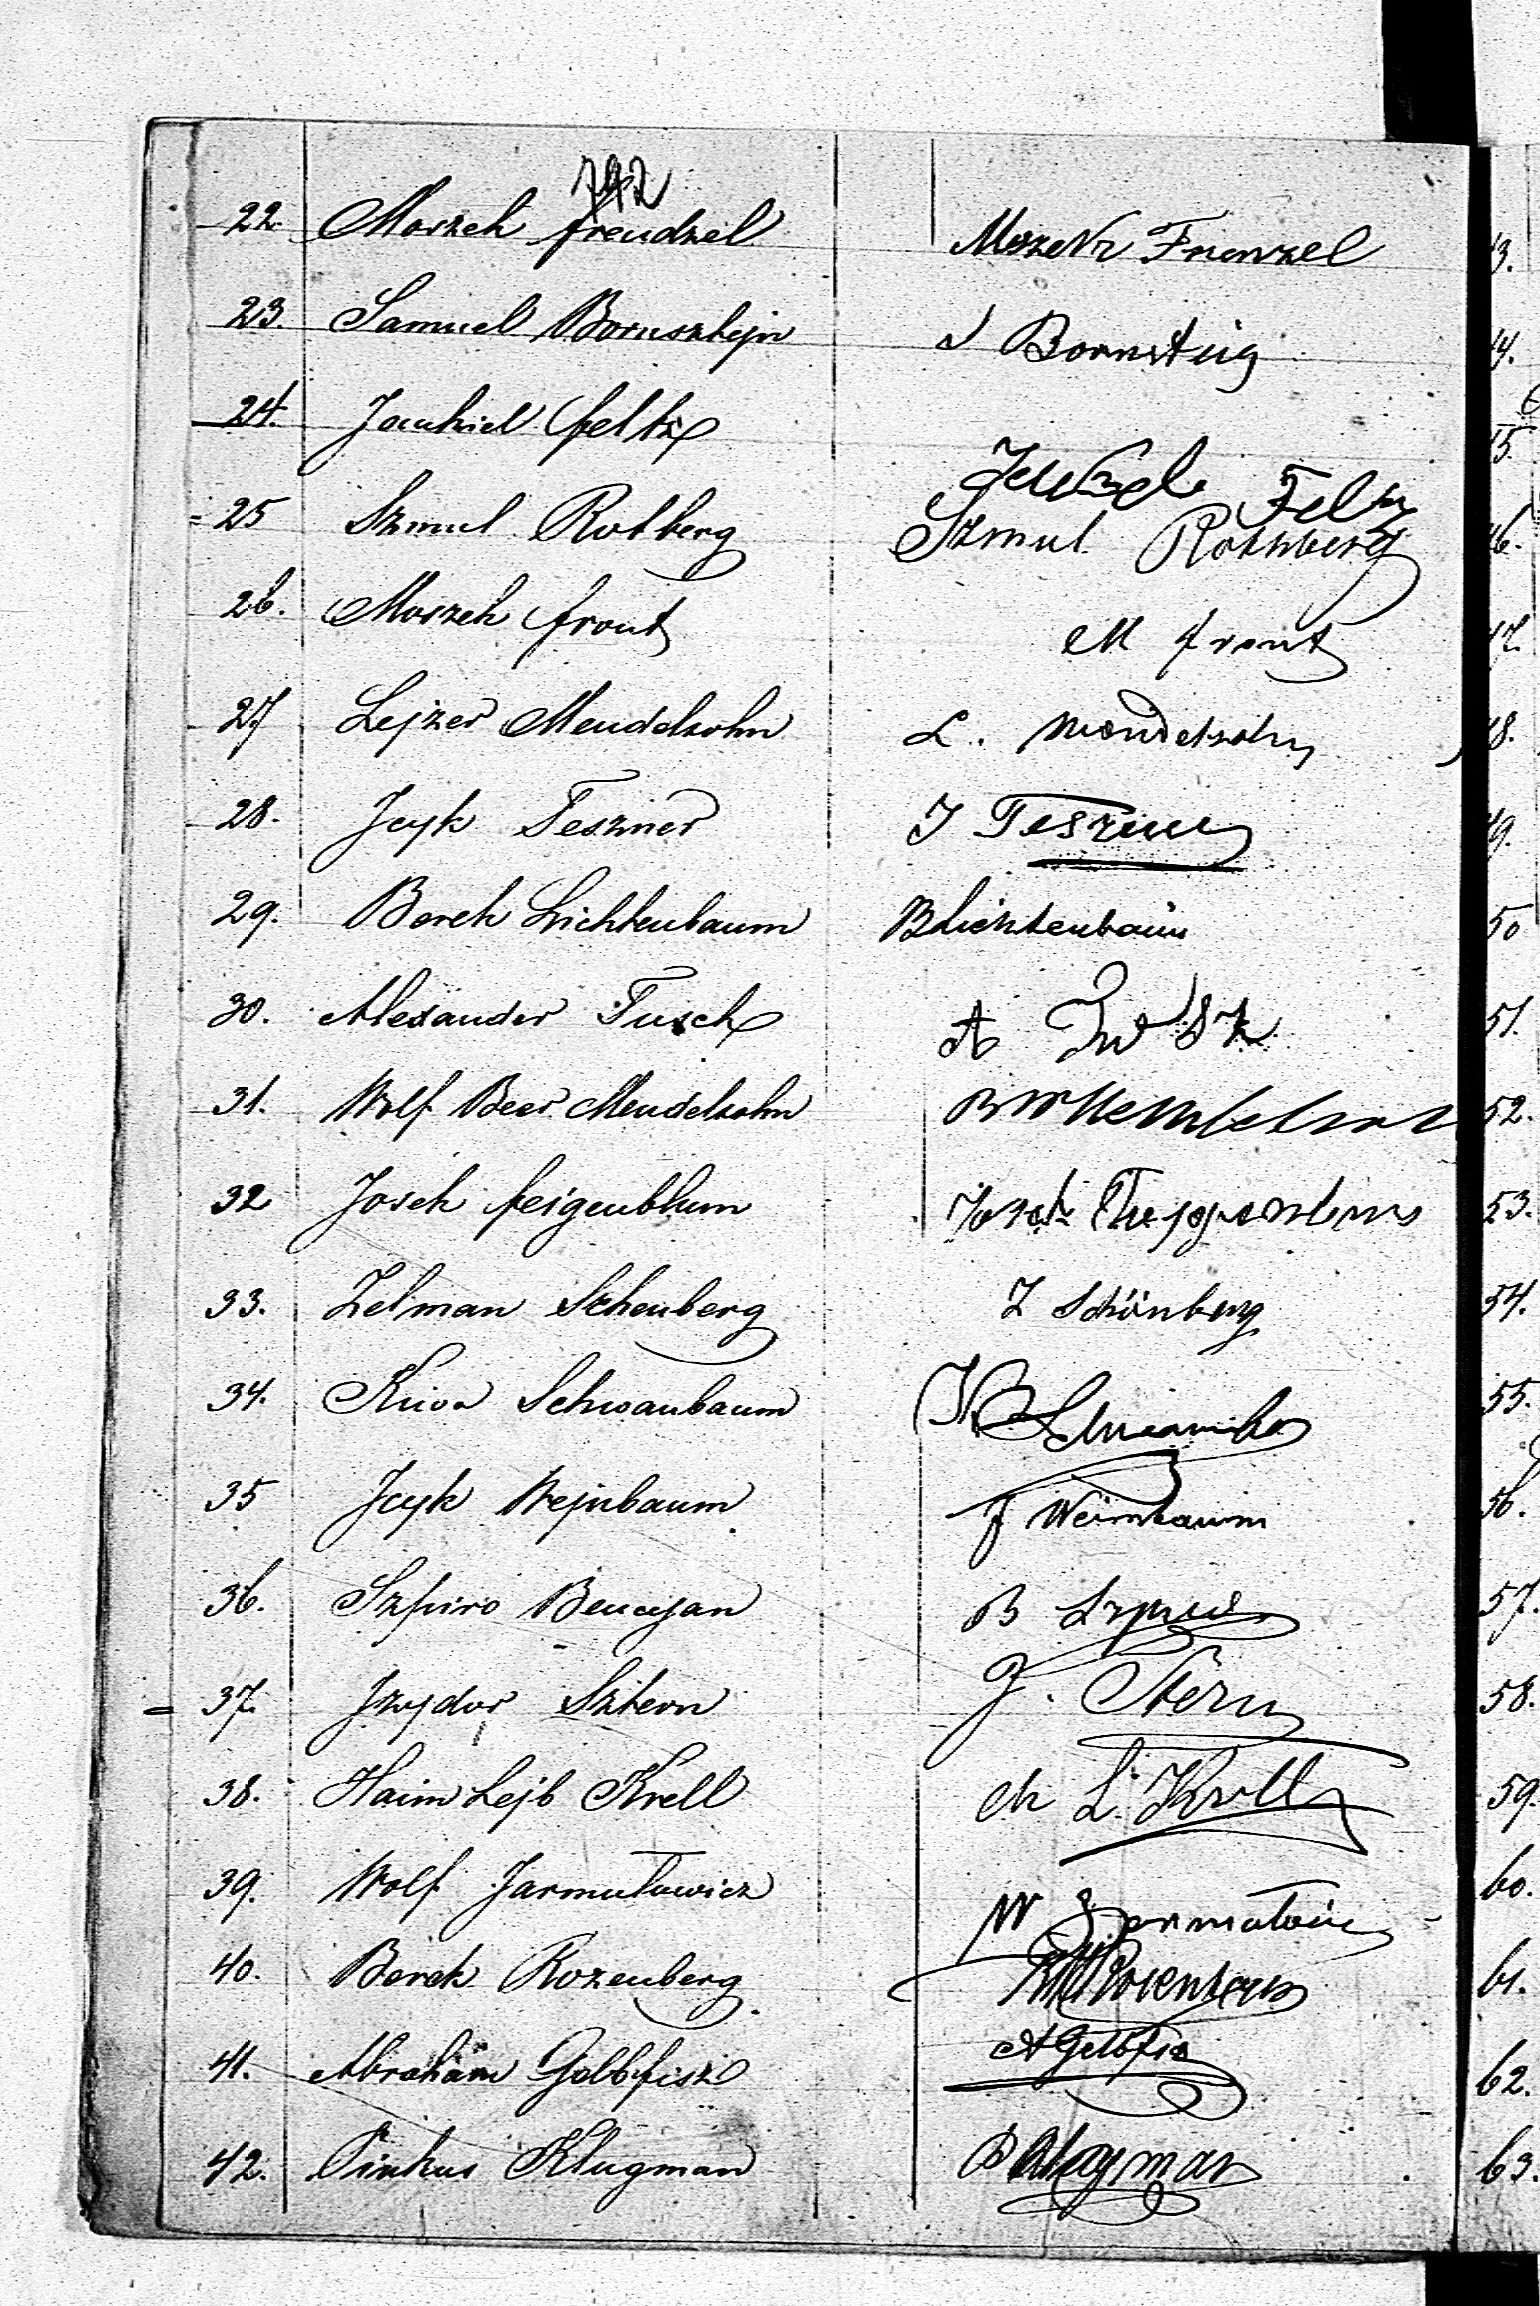 792
22. Moszek Frendzel Moszek Frenzel
23. Samuel Bornsztejn S Bornstein
24. Jankiel Feltz Feltz
25 Szmul Rotberg Szmul Rothberg
26. Moszek Front M Front
27 Lejzer Mendelsohn L. Mendelsohn
28. Jcyk Teszner J Teszner
29. Berek Lichtenbaum B Lichtenbaum
30. Alexander Tusch A
31. Wolf Beer Mendelsohn
32 Josek Feigenblum Josek
33. Zelman Szhenberg Z Schönberg
34. Kiwa Schwanbaum
35 Jcyk Wejnbaum J Weinbaum
36. Szpiro Bencyan B Szpiro
37. Jzydor Sztern J. Stern
38. Haim Lejb Krell Ch L. Krell
39. Wolf Jarmulowicz W
40. Berek Rozenberg Rosenberg
41. Abraham Gelbfisz A Gelbfis
42. Pinkus Klugman P Klugman
43.
44.
45
46.
47.
48.
49.
50
51.
52.
53.
54.
55.
56.
57.
58.
59.
60.
61.
62.
63.